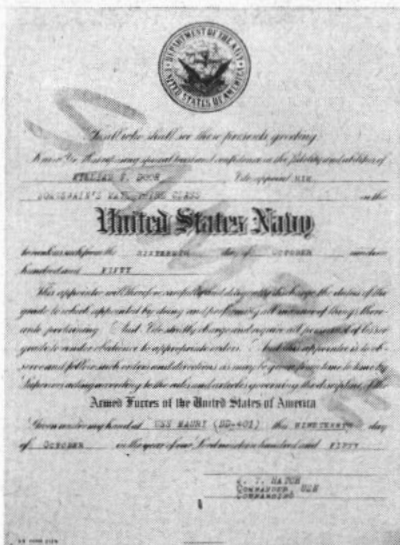 DEPARTMENT OF THE NAVY
UNITED STATES OF AMERICA
To all who shall see these presents, greeting:
Know Ye, that reposing special trust and confidence in the fidelity and abilities of
DOOR I do appoint HIM
BOATSWAIN'S MATE CLASS in the
United States Navy
to rank as such from the day of OCTOBER nineteen
hundred and FIFTY
This appointee will therefore carefully and diligently discharge the duties of the
grade to which appointed by doing and performing all manner of things there-
unto pertaining. And I do strictly charge and require all personnel of lesser
grade to render obedience to appropriate orders. And this appointee is to ob-
serve and follow such orders and directions as may be given from time to time by
Superiors acting according to the rules and articles governing the discipline of the
Armed Forces of the United States of America
Given under my hand at USS MAURY (DD-401) this day
of OCTOBER in the year of our Lord nineteen hundred and FIFTY
HATCH
COMMANDER, USN
COMMANDING